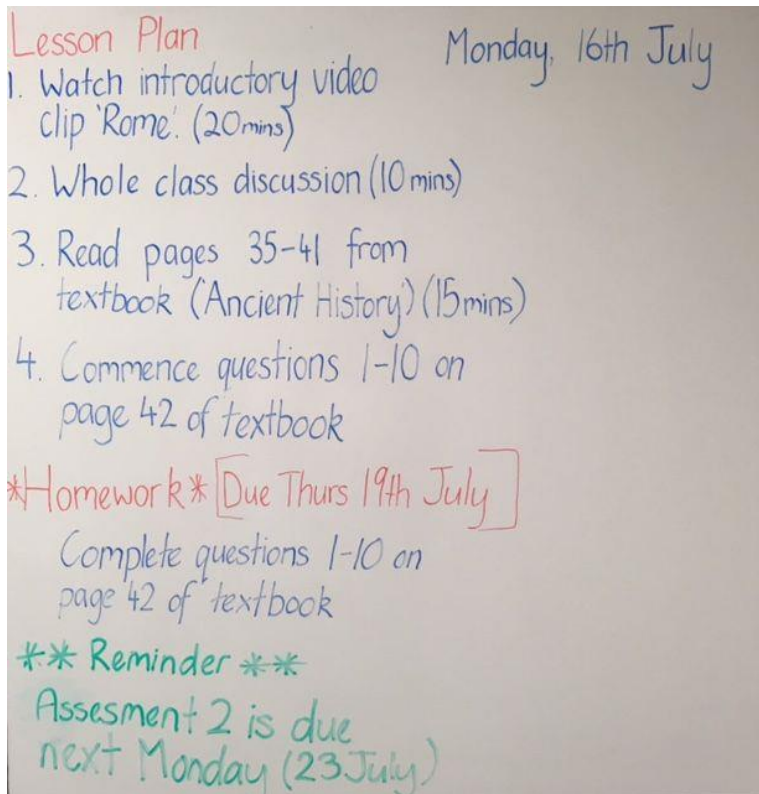 Lesson Plan
Monday, 16th July
1. Watch introductory video
clip 'Rome'. (20mins)
2. Whole class discussion (10 mins)
3. Read pages 35-41 from
textbook ('Ancient History') (15mins)
4. Commence questions 1-10 on
page 42 of textbook
*Homework* [Due Thurs 19th July]
Complete questions 1-10 on
page 42 of textbook
** Reminder **
Assesment 2 is due
next Monday (23 July)